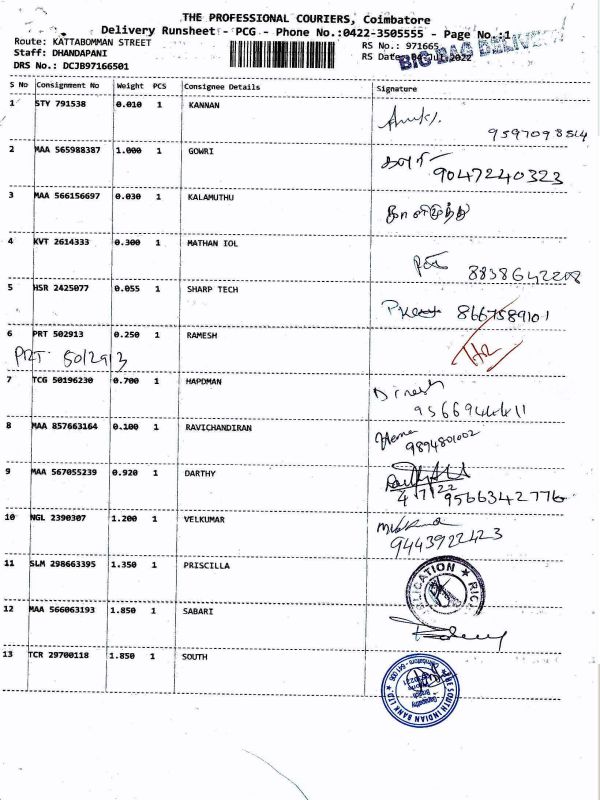 THE PROFESSIONAL COURIERS, Coimbatore
Delivery Runsheet - PCG - Phone No.:0422-3505555 - Page No.:1
Route: KATTABOMMAN STREET RS No.: 971665
Staff: DHANDAPANI RS Date: 04-Jul-2022
BIG BAG DELIVERY
DRS No.: DCJB97166501
S No Consignment No Weight PCS Consignee Details Signature
1 STY 791538 0.010 1 KANNAN
9597098514
2 MAA 565988387 1.000 1 GOWRI
கௌரி
9047240323
3 MAA 566156697 0.030 1 KALAMUTHU
காளிமுத்து
4 KVT 2614333 0.300 1 MATHAN IOL
8838642208
5 HSR 2425077 0.055 1 SHARP TECH
8667589101
6 PRT 502913 0.250 1 RAMESH
PRT 502913
7 TCG 50196230 0.700 1 HAPDMAN
Dinesh
9566944411
8 MAA 857663164 0.100 1 RAVICHANDIRAN
Hema
9894801002
9 MAA 567055239 0.920 1 DARTHY
4/7/22 9566342776
10 NGL 2390307 1.200 1 VELKUMAR
9443922423
11 SLM 298663395 1.350 1 PRISCILLA
12 MAA 566063193 1.850 1 SABARI
13 TCR 29700118 1.850 1 SOUTH
THE SOUTH INDIAN BANK LTD.
Ganapathy
Branch
Coimbatore - 641 006